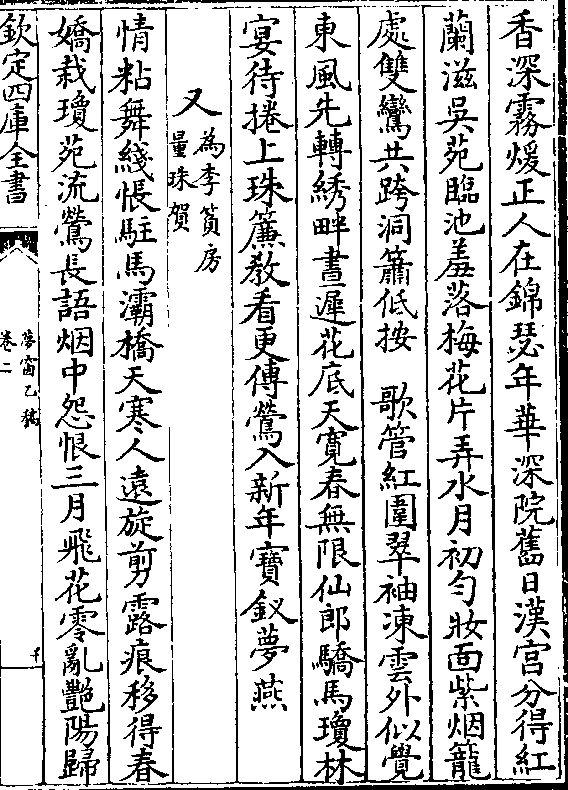 香深霧煖正人在錦瑟年華深院舊日漢宫分得紅
蘭滋吳苑臨池羞落梅花片弄水月初勻妝面紫烟籠
處雙鸞共跨洞簫低按　歌管紅圍翠袖凍雲外似覺
東風先轉綉畔晝遲花底天寛春無限仙郎驕馬瓊林
宴待捲上珠簾教看更傳鶯入新年寶釵夢燕
又為李篔房量珠賀
情粘舞綫悵駐馬灞橋天寒人遠旋剪露痕移得春
嬌栽瓊苑流鶯長語烟中怨恨三月飛花零亂艷陽歸
欽定四庫全書
夢窗乙稿
卷二